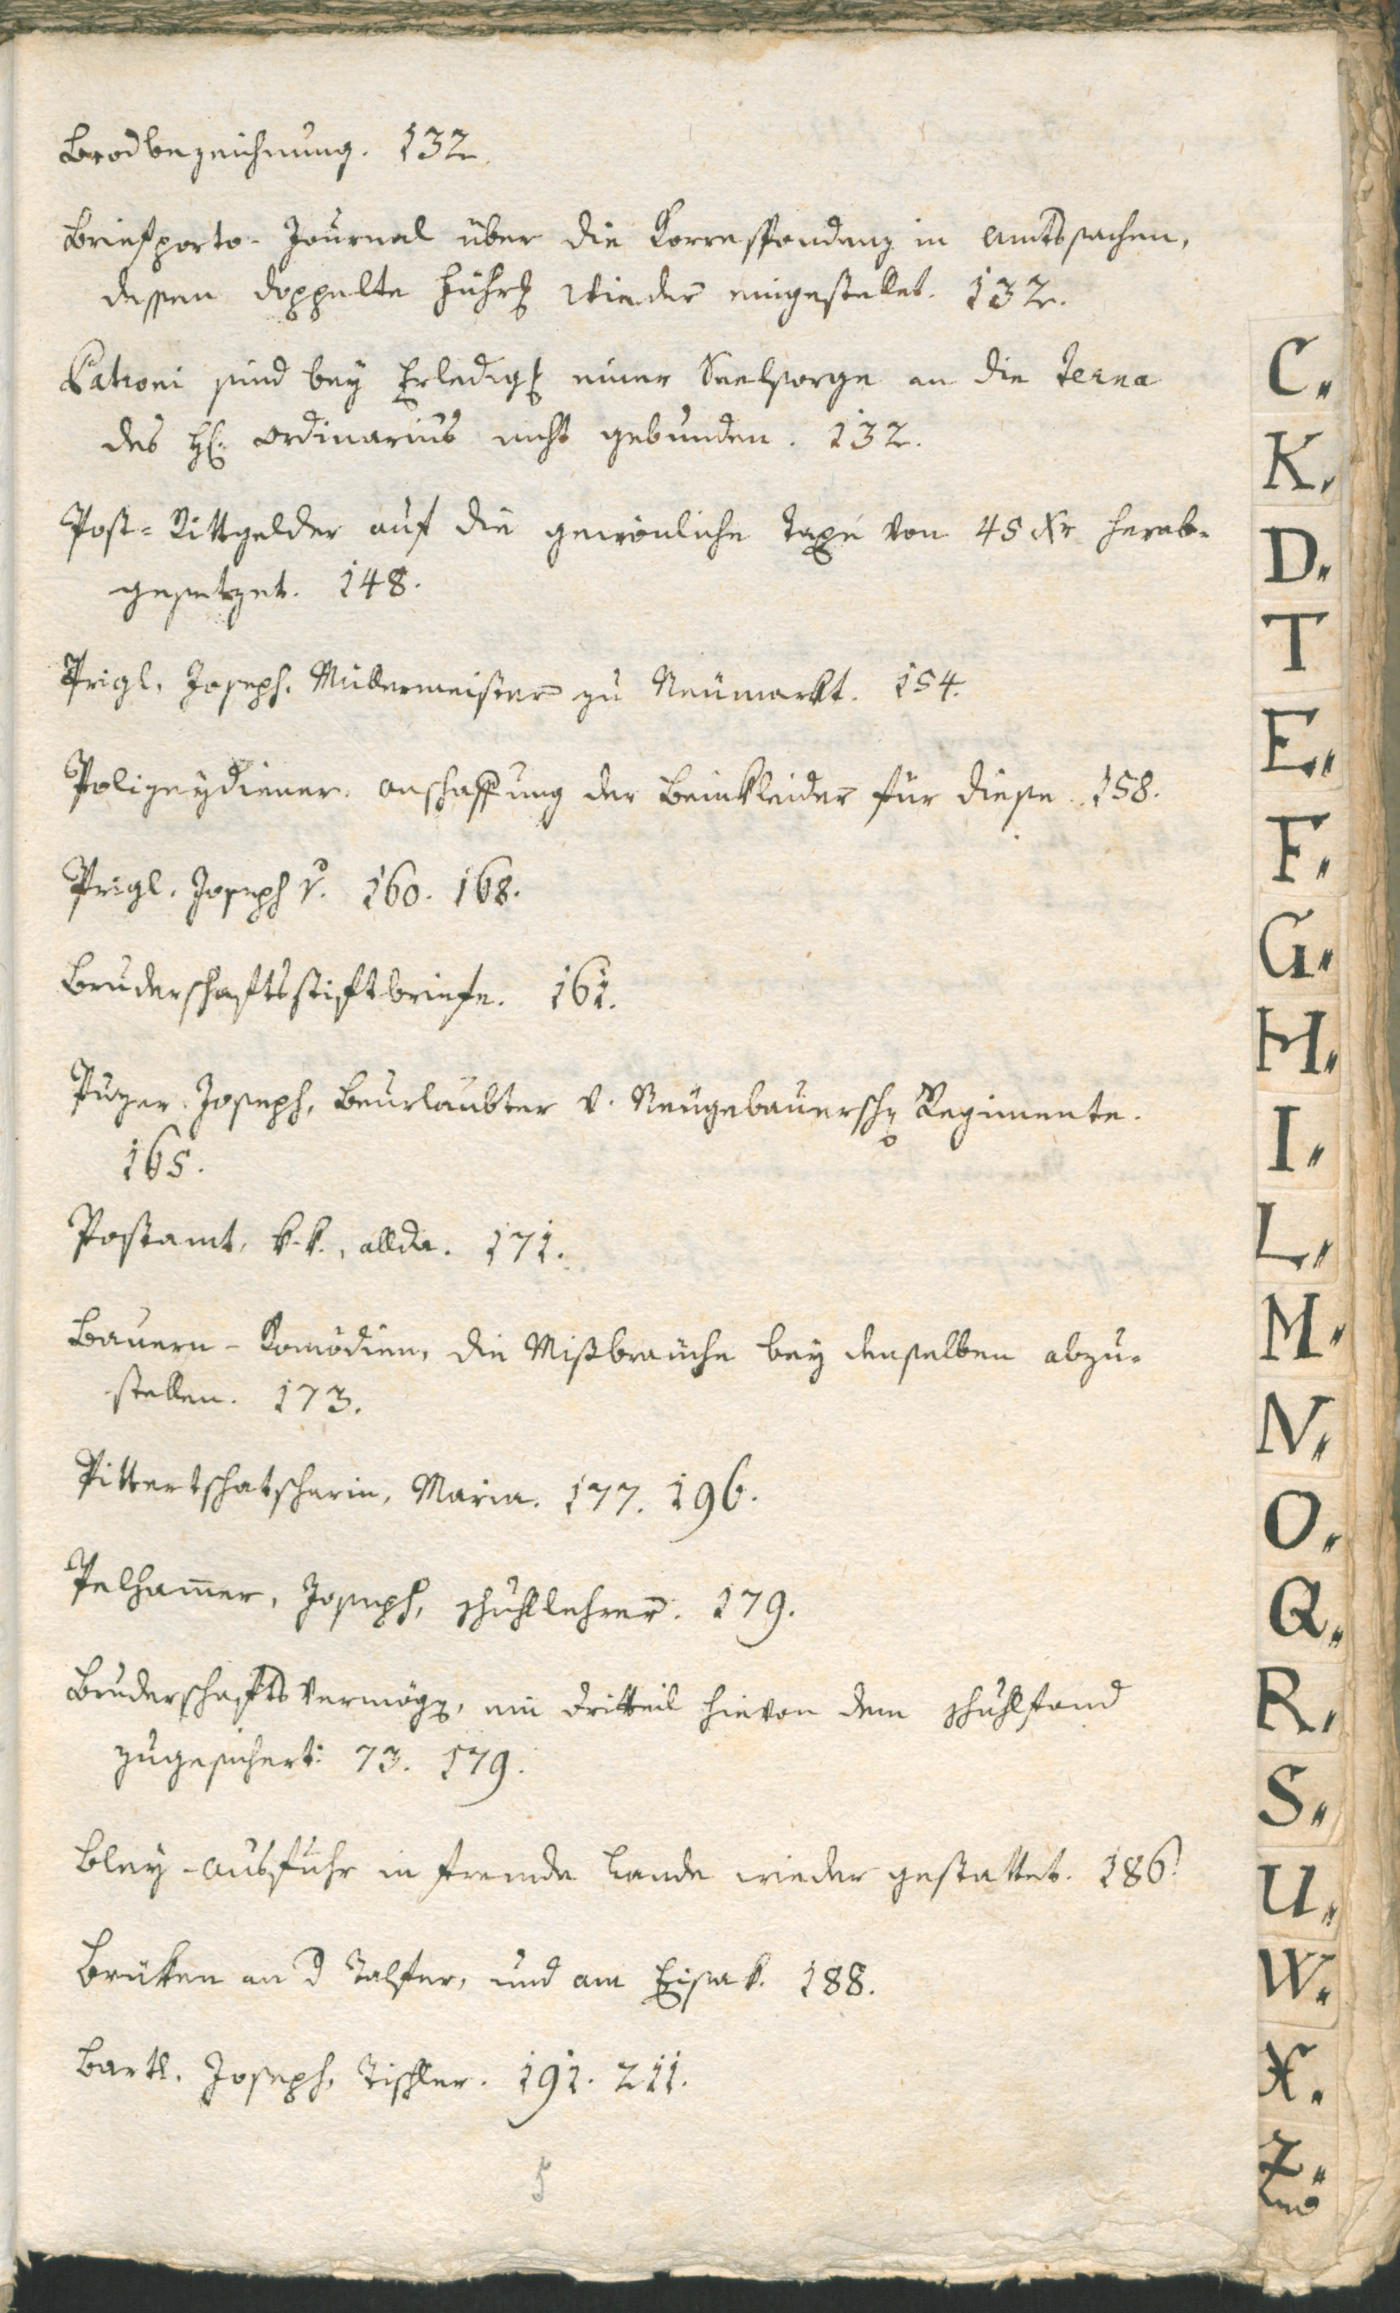 Brodbezeichnung. 132.
Briefporto-Journal über die Korrespondenz in Amtssachen,
dessen doppelte Führg wieder eingestellet. 132.
Patroni sind bey Erledigg einer Seelsorge an die Terna
des H. Ordinarius nicht gebunden. 132.
Post-Rittgelder auf die gewönliche Taxe von 45 Xr herab-
gesetzet. 148.
Prigl, Joseph, Müllermeister zu Neumarkt. 154.
Polizeydiener. Anschaffung der Beinkleider für diese. 158.
Prigl. Joseph v. 160. 168.
Bruderschaftsstiftbriefe. 161.
Puzer Joseph, Beurlaubter v. Neugebauersch Regimente.
165.
Postamt, k. k., allda. 171.
Bauern-Komödien, die Missbräuche bey denselben abzu-
stellen. 173.
Pittertschatscherin, Maria. 177. 196.
Pelham̅er, Joseph, Schullehrer. 179.
Bruderschafts Vermögen, ein Dritteil hievon dem Schuhlfond
zugesichert: 73. 179.
Bley-Ausfuhr in fremde Lande wieder gestattet. 186.
Brüken an d Talfer, und am Eisak. 188.
Bartl. Joseph, Tischler. 191. 211.
C.
K.
D.
T
E.
F.
G.
H.
I.
L.
M.
N.
O.
Q.
R.
S.
U.
W.
X.
Z.